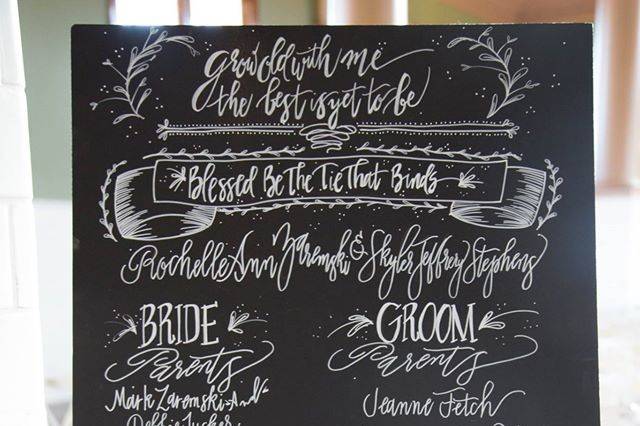 grow old with me
the best is yet to be
Blessed Be The Tie That Binds
Rochelle Ann Zaremski & Skyler Jeffrey Stephens
BRIDE GROOM
Parents Parents
Mark Zaremski And Jeanne Fetch
Debbie Tucker